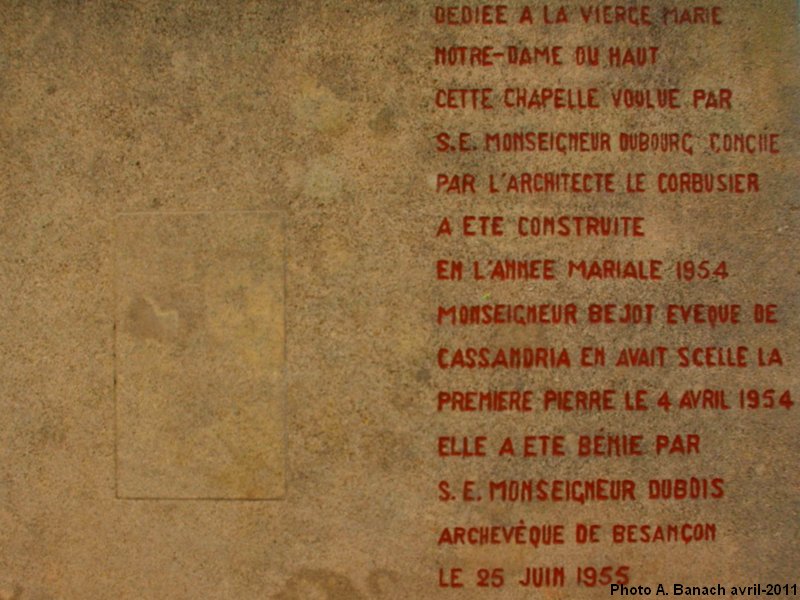 DEDIEE A LA VIERGE MARIE
NOTRE-DAME DU HAUT
CETTE CHAPELLE VOULUE PAR
S.E. MONSEIGNEUR DUBOURG CONÇUE
PAR L'ARCHITECTE LE CORBUSIER
A ETE CONSTRUITE
EN L'ANNEE MARIALE 1954
MONSEIGNEUR BEJOT EVEQUE DE
CASSANDRIA EN AVAIT SCELLE LA
PREMIERE PIERRE LE 4 AVRIL 1954
ELLE A ETE BÉNIE PAR
S. E. MONSEIGNEUR DUBOIS
ARCHEVÊQUE DE BESANÇON
LE 25 JUIN 1955
Photo A. Banach avril-2011